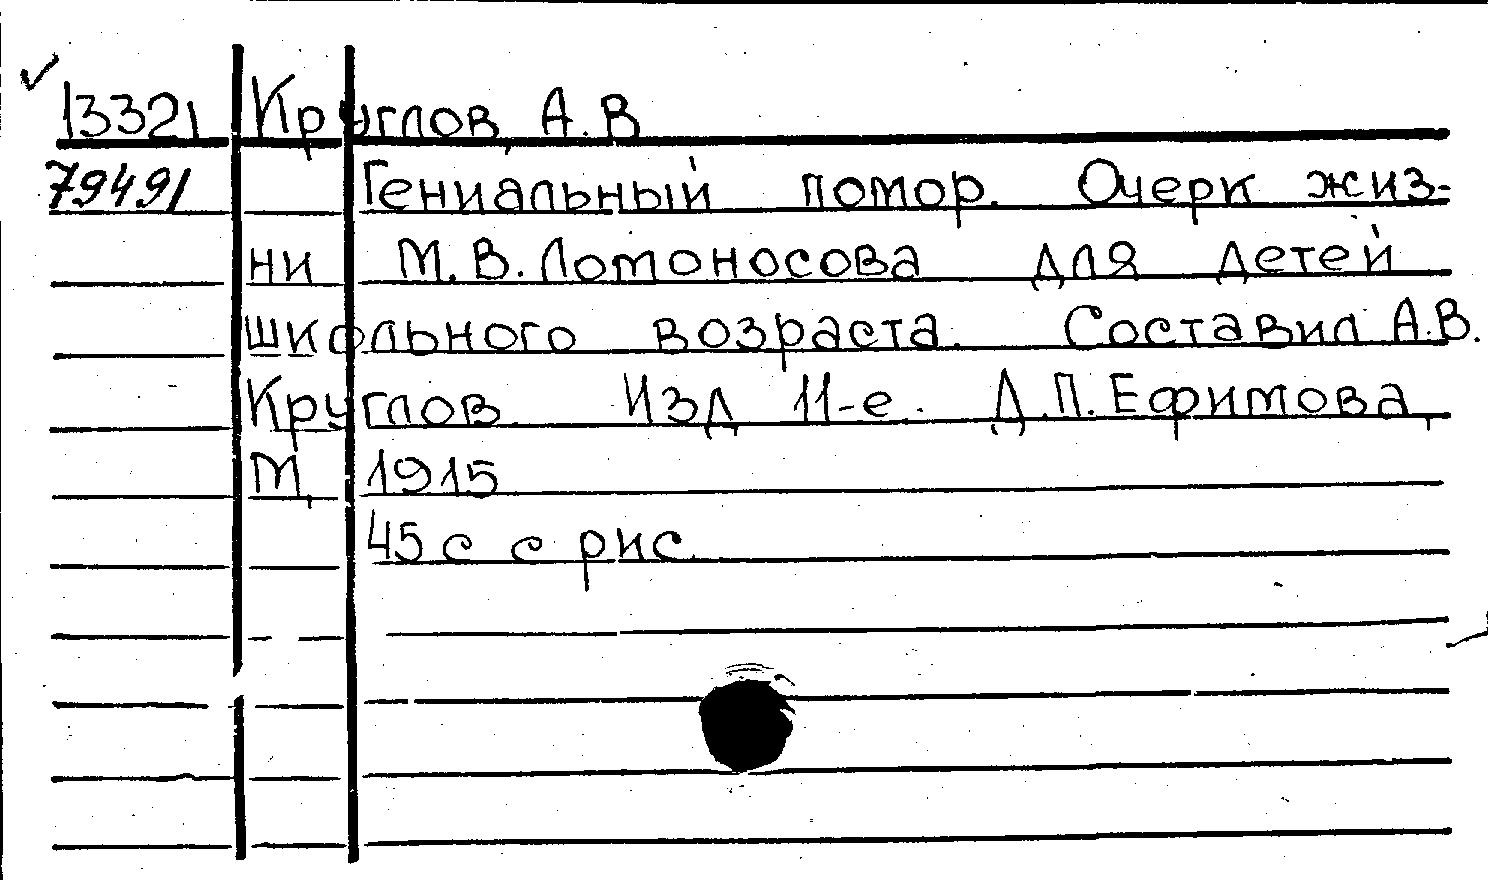 13321 Круглов, А.В
79491 Гениальный помор. Очерк жиз-
ни М.В.Ломоносова для детей
школьного возраста. Составил А.В.
Круглов. Изд 11-е. Д.П.Ефимова,
М, 1915
45 с с рис.